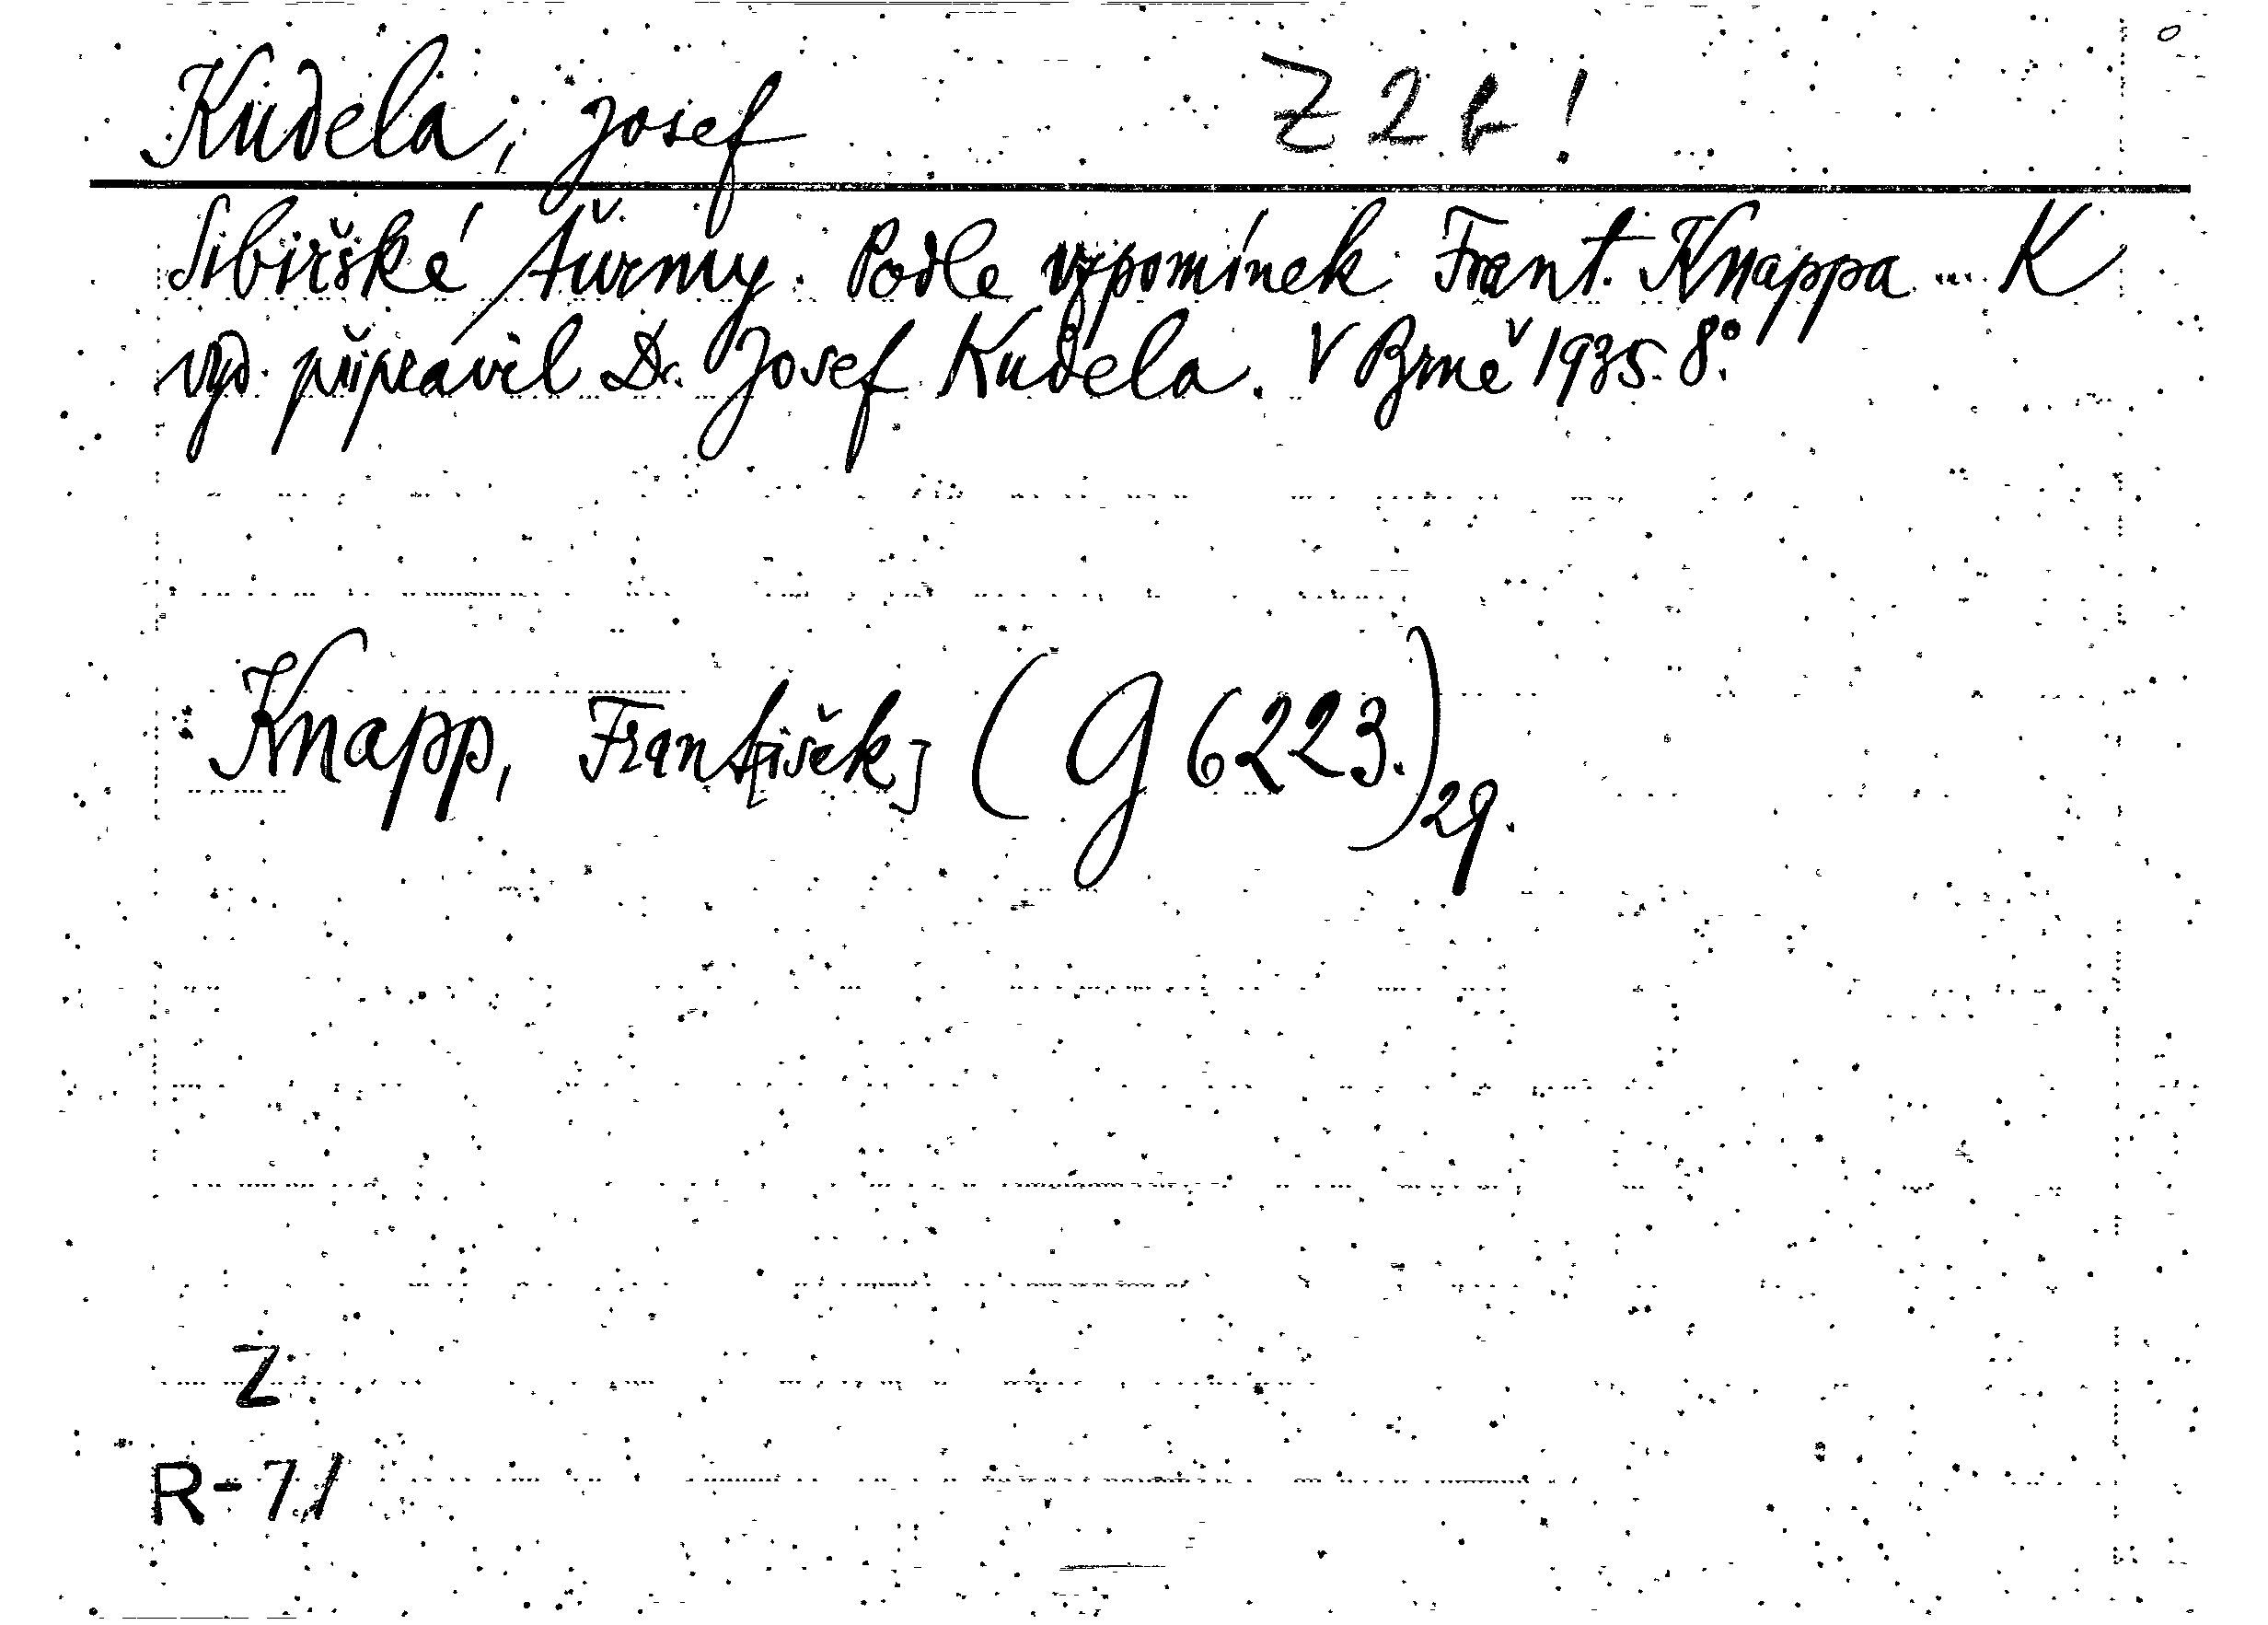 Kudela, Josef Z 2 b!
Sibiřské ťurmy. Podle vzpomínek Frant. Knappa ... K
vyd. připravil Dr. Josef Kudela. V Brně 1935. 8°.
Knapp, Frant[išek] (G 6223.)29.
Z
R-71